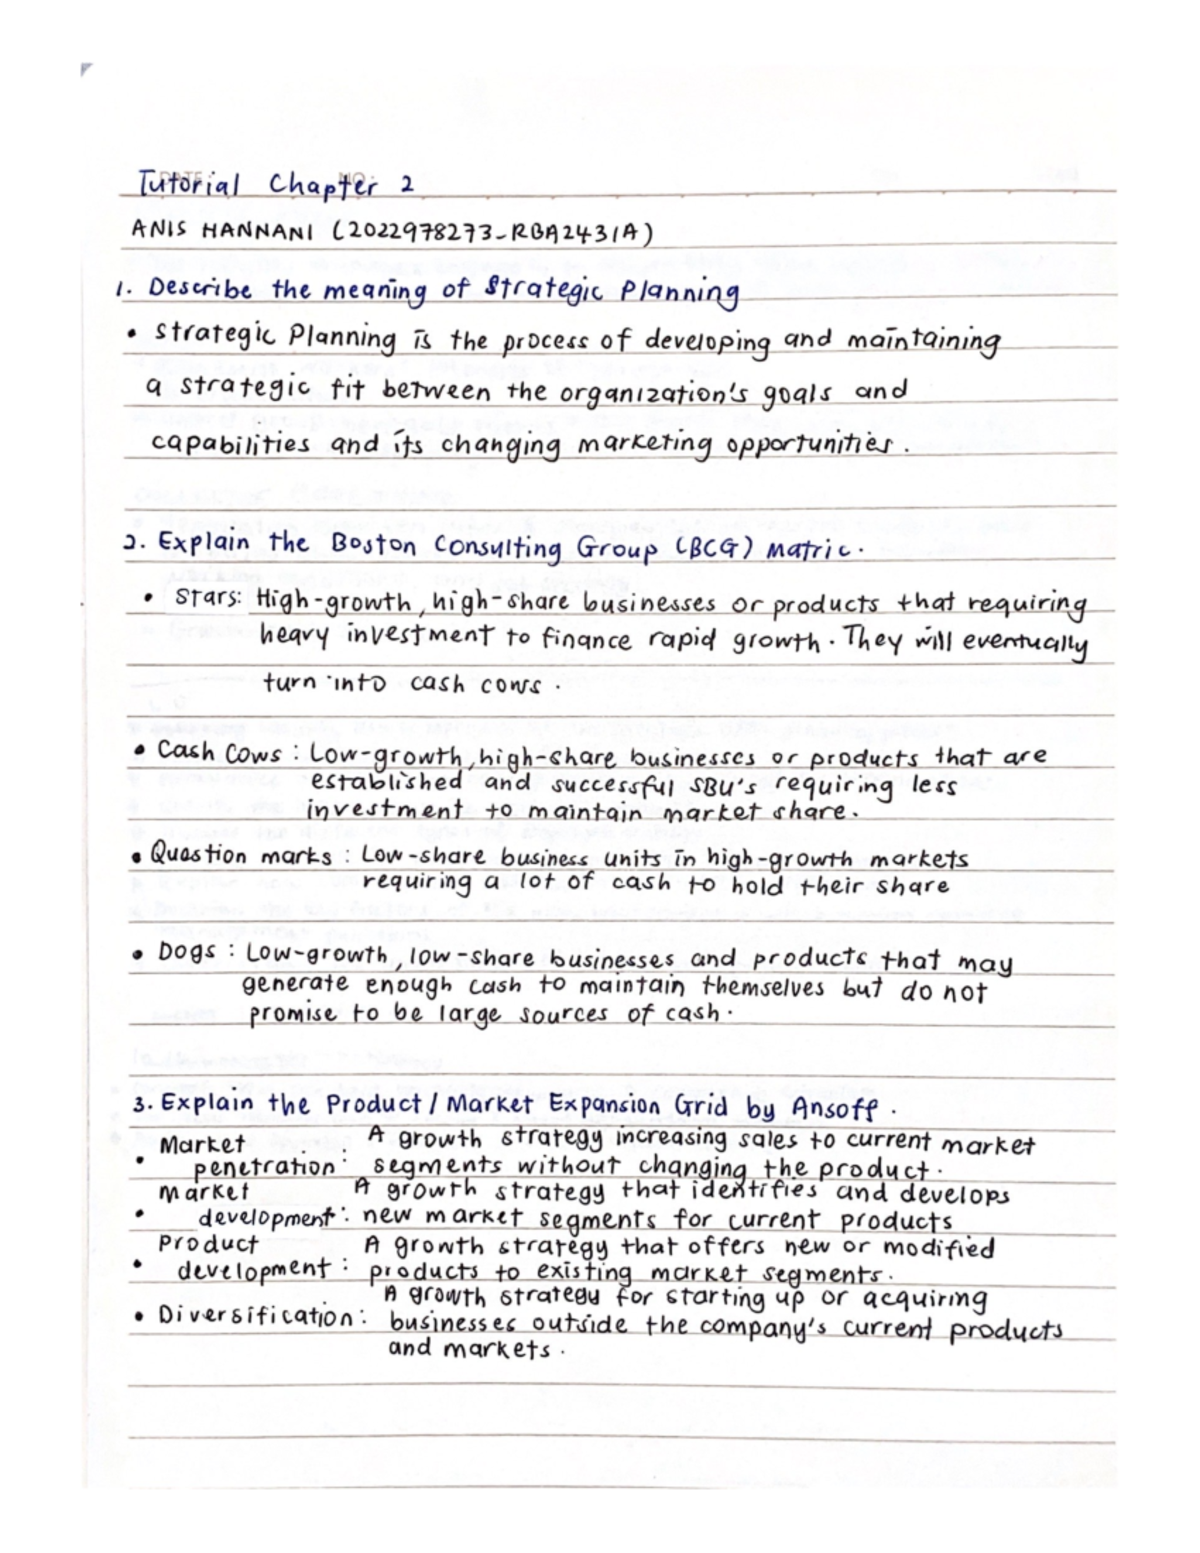 Tutorial Chapter 2
ANIS HANNANI (2022978273-RBA2431A)
1. Describe the meaning of Strategic Planning
• Strategic Planning is the process of developing and maintaining
a strategic fit between the organization's goals and
capabilities and its changing marketing opportunities.
2. Explain the Boston Consulting Group (BCG) Matric.
• Stars: High-growth, high-share businesses or products that requiring
heavy investment to finance rapid growth. They will eventually
turn into cash cows.
• Cash Cows: Low-growth, high-share businesses or products that are
established and successful SBU's requiring less
investment to maintain market share.
• Question marks: Low-share business units in high-growth markets
requiring a lot of cash to hold their share
• Dogs: Low-growth, low-share businesses and products that may
generate enough cash to maintain themselves but do not
promise to be large sources of cash.
3. Explain the Product / Market Expansion Grid by Ansoff.
• Market penetration: A growth strategy increasing sales to current market
segments without changing the product.
• Market development: A growth strategy that identifies and develops
new market segments for current products
• Product development: A growth strategy that offers new or modified
products to existing market segments.
• Diversification: A growth strategy for starting up or acquiring
businesses outside the company's current products
and markets.